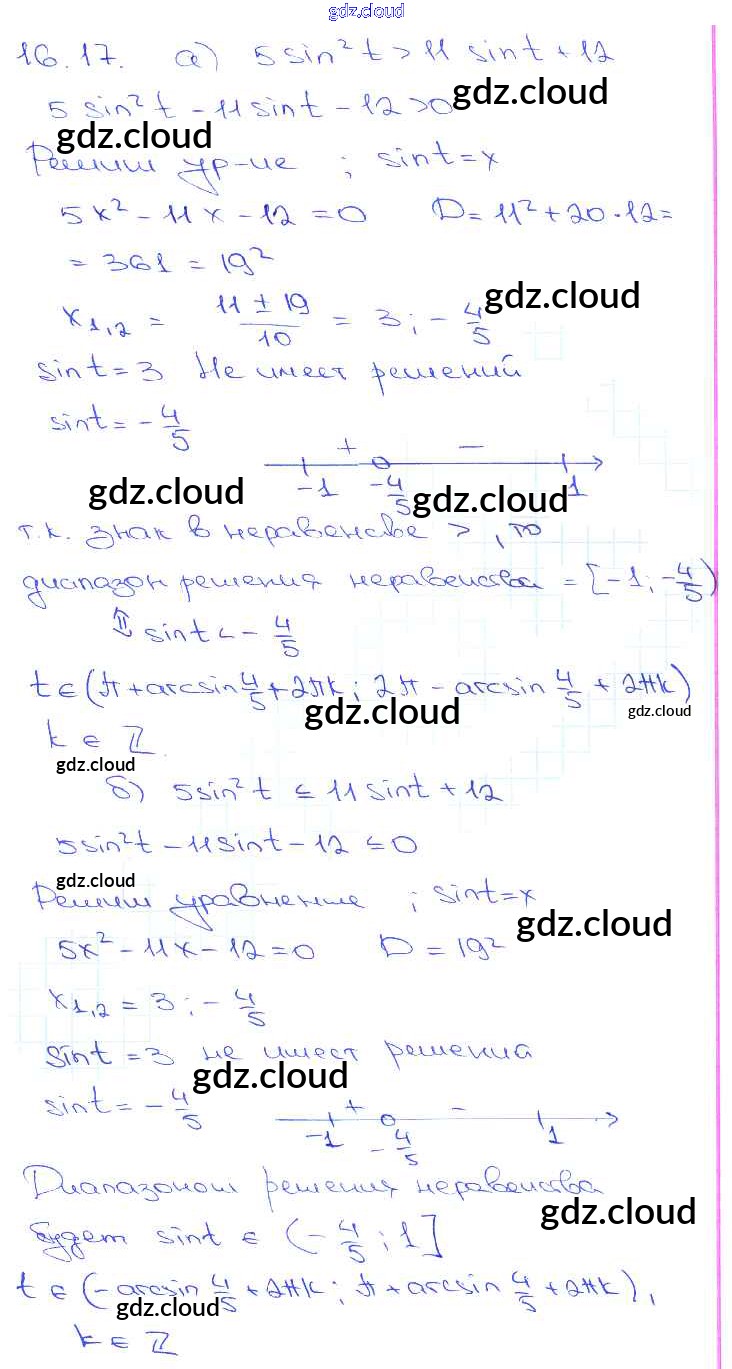 gdz.cloud
16.17. а) 5 sin² t > 11 sin t + 12
5 sin² t - 11 sin t - 12 > 0 gdz.cloud
gdz.cloud
Решим ур-ие ; sin t = x
5x² - 11x - 12 = 0 D = 11² + 20·12 =
= 361 = 19²
x₁,₂ = (11 ± 19)/10 = 3; -4/5 gdz.cloud
sin t = 3 Не имеет решений
sin t = -4/5
+ -
-1 -4/5 1
gdz.cloud gdz.cloud
т.к. знак в неравенстве >, то
диапазон решения неравенства = [-1; -4/5)
⇕ sin t < -4/5
t ∈ (π + arcsin 4/5 + 2πk; 2π - arcsin 4/5 + 2πk)
gdz.cloud gdz.cloud
k ∈ ℤ
gdz.cloud
б) 5 sin² t ≤ 11 sin t + 12
5 sin² t - 11 sin t - 12 ≤ 0
gdz.cloud
Решим уравнение ; sin t = x
gdz.cloud
5x² - 11x - 12 = 0 D = 19²
x₁,₂ = 3; -4/5
sin t = 3 не имеет решения
gdz.cloud
sin t = -4/5
+ -
-1 -4/5 1
Диапазоном решения неравенства
gdz.cloud
будет sin t ∈ (-4/5; 1]
t ∈ (-arcsin 4/5 + 2πk; π + arcsin 4/5 + 2πk),
gdz.cloud
k ∈ ℤ